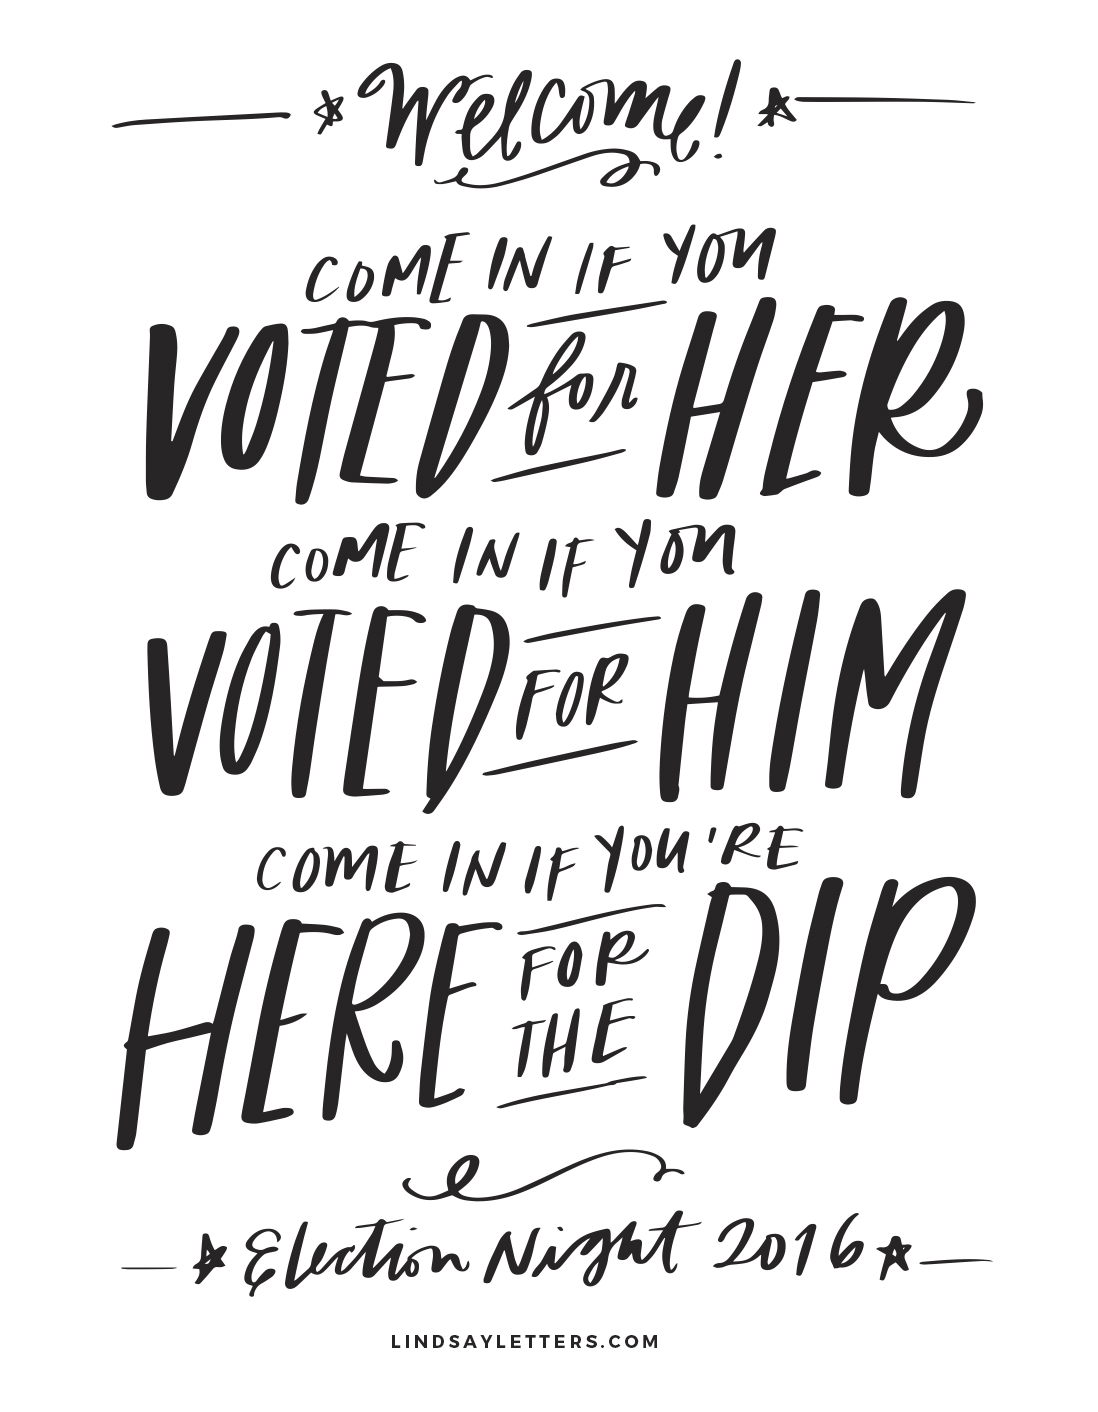 Welcome!
COME IN IF YOU
VOTED for HER
COME IN IF YOU
VOTED FOR HIM
COME IN IF YOU'RE
HERE FOR THE DIP
Election Night 2016
LINDSAYLETTERS.COM